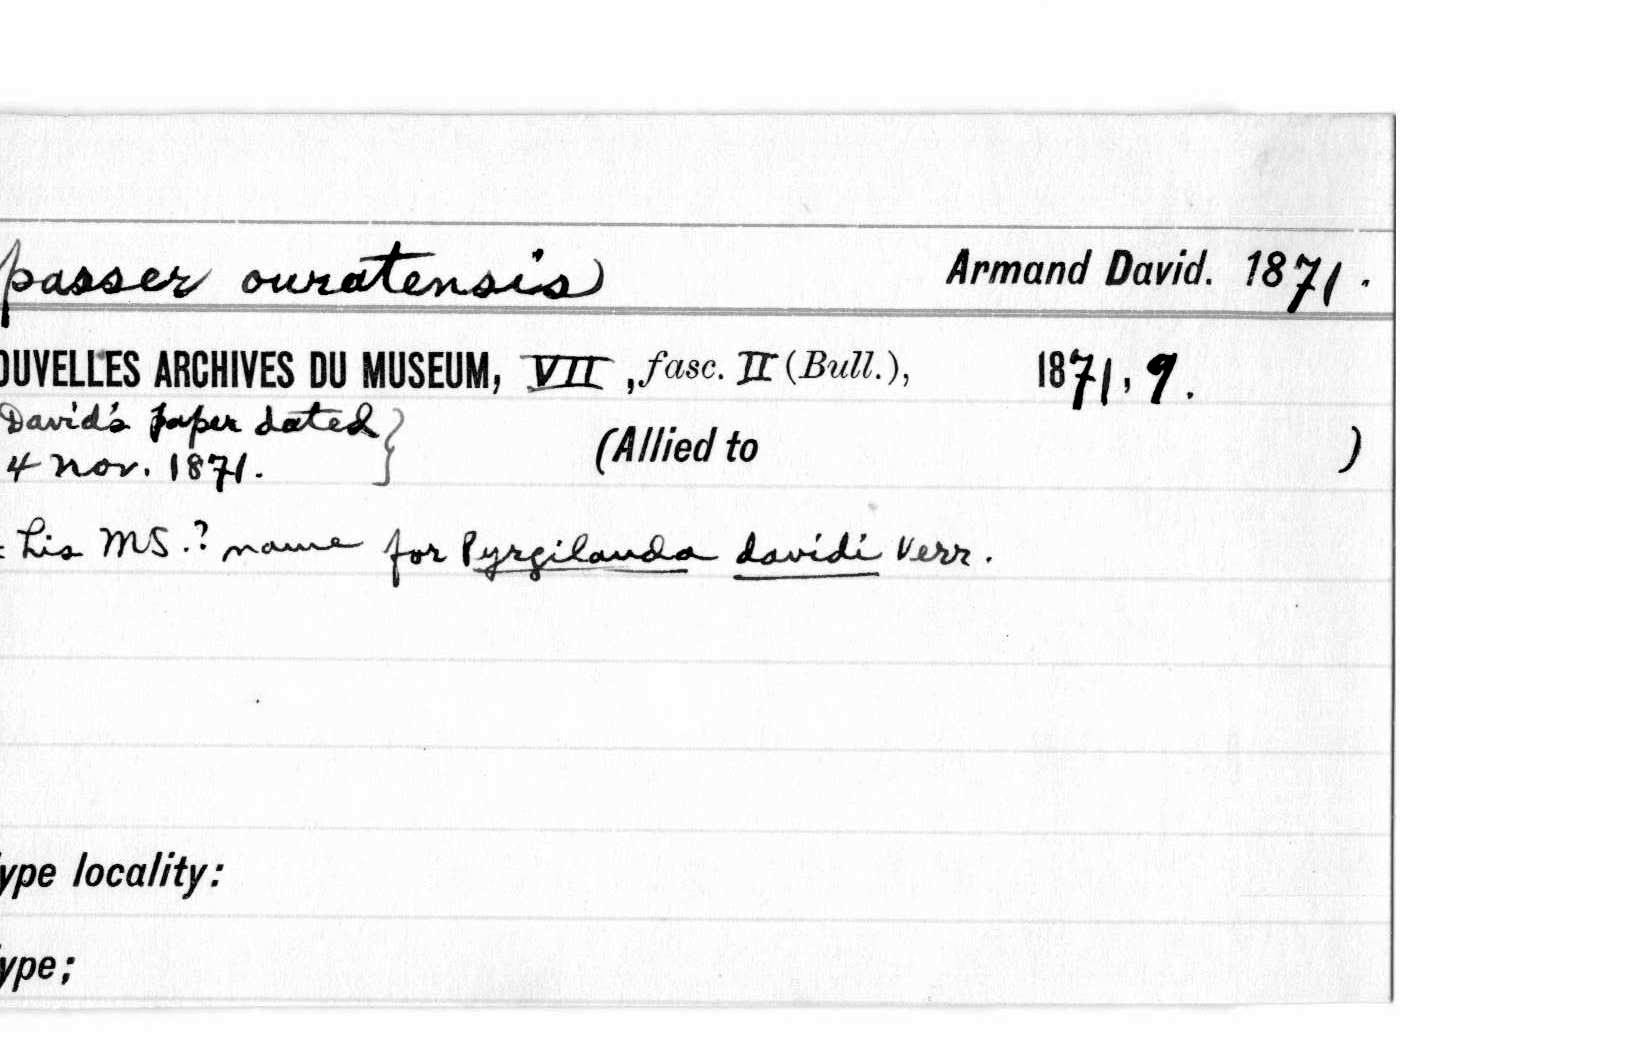 passer ouratensis Armand David. 1871.
OUVELLES ARCHIVES DU MUSEUM, VII, fasc. II (Bull.), 1871, 9.
David's paper dated
4 Nov. 1871. } (Allied to )
= his MS.? name for Pyrgilauda davidi Verr.
ype locality:
ype;